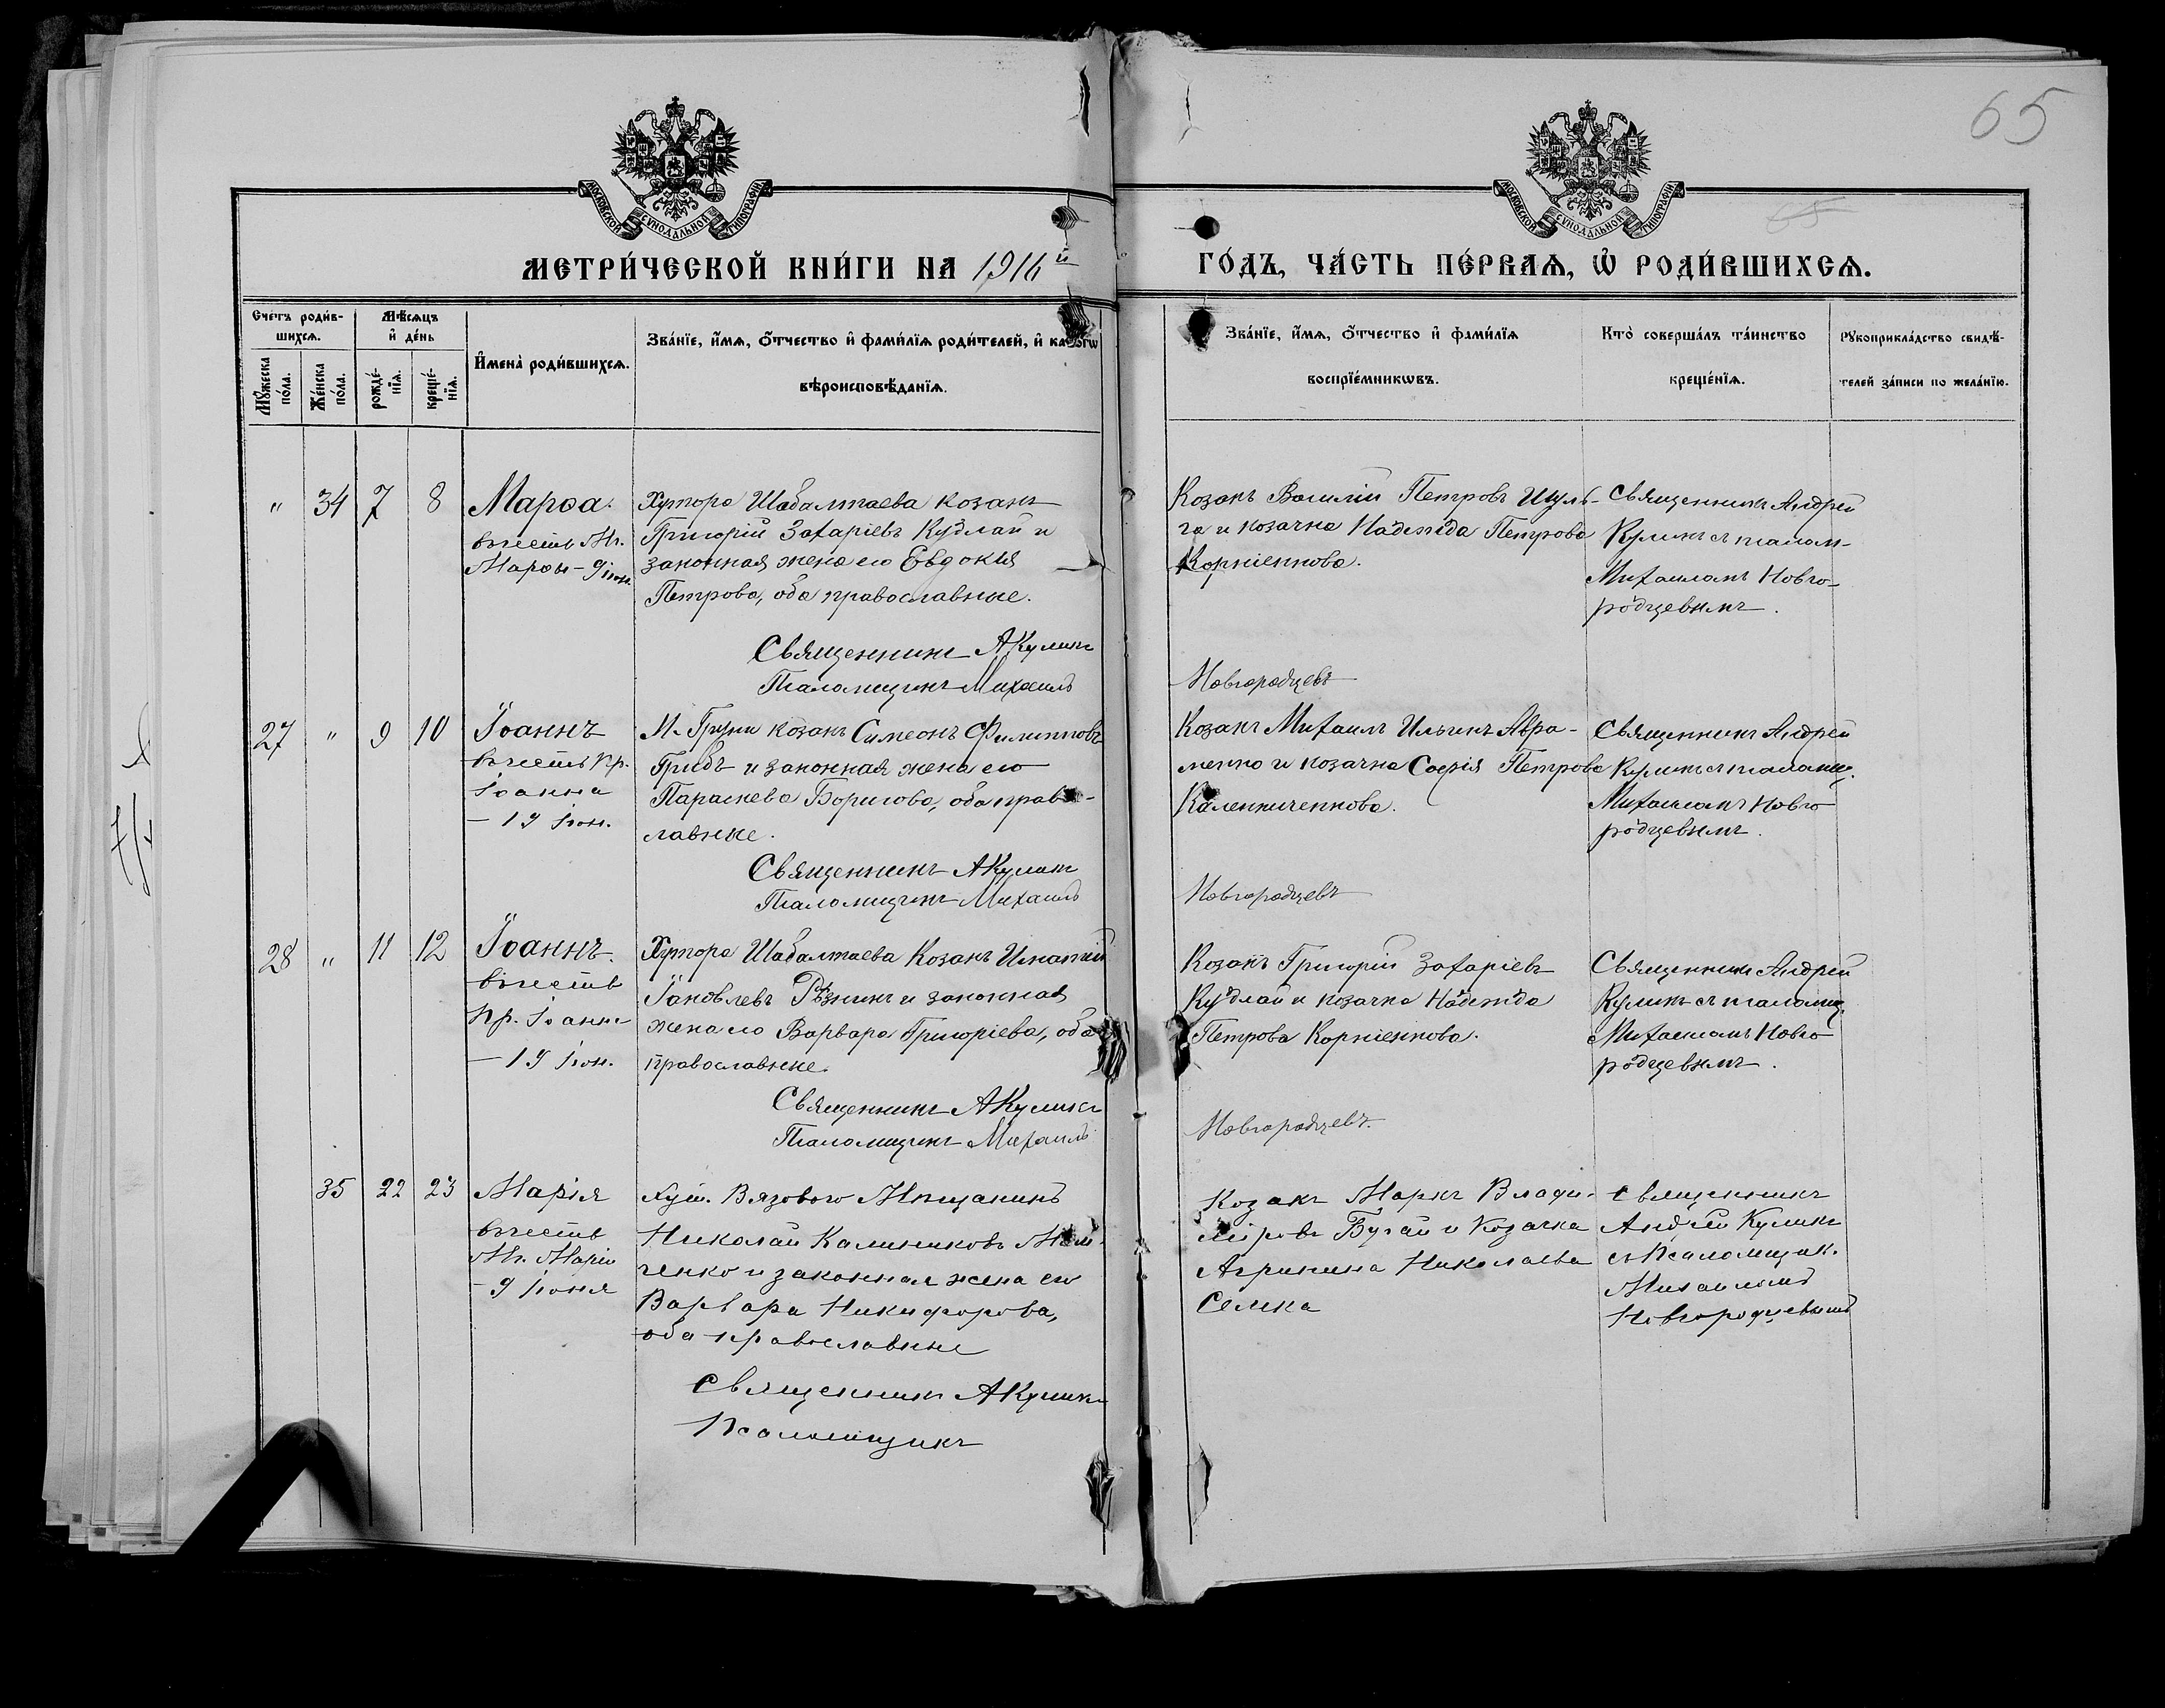 65
МОСКОВСКОЙ СѴНОДАЛЬНОЙ ТИПОГРАФІИ
МОСКОВСКОЙ СѴНОДАЛЬНОЙ ТИПОГРАФІИ
65
МЕТРИ́ЧЕСКОЙ КНИ́ГИ НА 1916й
ГО́ДЪ, ЧА́СТЬ ПЕ́РВАѦ, Ѡ҆ РОДИ́ВШИХСѦ.
Сче́тъ роди́в-
шихсѧ.
Мꙋ́жеска по́ла.
Же́нска по́ла.
Мѣ́сѧцъ
и҆ де́нь
рожде́-
нїѧ.
креще́-
нїѧ.
И҆мена̀ роди́вшихсѧ.
Зва́нїе, и҆́мѧ, о҆́тчество и҆ фами́лїѧ роди́телей, и҆ како́гѡ
вѣроисповѣ́данїѧ.
Зва́нїе, и҆́мѧ, о҆́тчество и҆ фами́лїѧ
воспрїе́мникѡвъ.
Кто̀ соверша́лъ та́инство
креще́нїѧ.
Рꙋкоприкла́дство свидѣ́-
телей за́писи по жела́нїю.
" 34 7 8
Марѳа.
въ честь Мч.
Марѳы - 9 іюн.
Хутора Шабалтаева козакъ
Григорій Захаріевъ Кудлай и
законная жена его Евдокія
Петрова, оба православные.
Священникъ А Куликъ
Псаломщикъ Михаилъ
Козакъ Василій Петровъ Шуль-
га и козачка Надежда Петрова
Корніенкова.
Новгородцевъ
Священникъ Андрей
Куликъ с псалом-
Михаиломъ Новго-
родцевымъ.
27 " 9 10
Іоаннъ
въ честь пр.
Іоанна
- 19 іюн.
М. Груни козакъ Симеонъ Филипповъ
Грибъ и законная жена его
Параскева Борисова, оба право-
славные.
Священникъ А Куликъ
Псаломщикъ Михаилъ
Козакъ Михаилъ Ильинъ Авра-
менко и козачка Софія Петрова
Каленниченкова.
Новгородцевъ
Священникъ Андрей
Куликъ с псаломщ.
Михаиломъ Новго
родцевымъ.
28 " 11 12
Іоаннъ.
въ честь
пр. Іоанна
- 19 іюн.
Хутора Шабалтаева Козакъ Игнатій
Іаковлевъ Рѣзникъ и законная
жена его Варвара Григоріева, оба
православные.
Священникъ А Куликъ
Псаломщикъ Михаилъ
Козакъ Григорій Захаріевъ
Кудлай и козачка Надежда
Петрова Корніенкова.
Новгородцевъ.
Священникъ Андрей
Куликъ с псаломщ.
Михаиломъ Новго
родцевымъ.
35 22 23
Марія
въ честь
Мч. Маріи
- 9 іюня
Хут. Вязового Мѣщанинъ
Николай Калинниковъ
ченко и законная жена его
Варвара Никифорова,
оба православные
Священникъ А Куликъ
Псаломщикъ
Козакъ Маркъ Влади-
міровъ Бугай и Козачка
Агрипина Николаева
Семка
Священникъ
Андрей Куликъ
с Псаломщик.
Михаиломъ
Новгородцевымъ